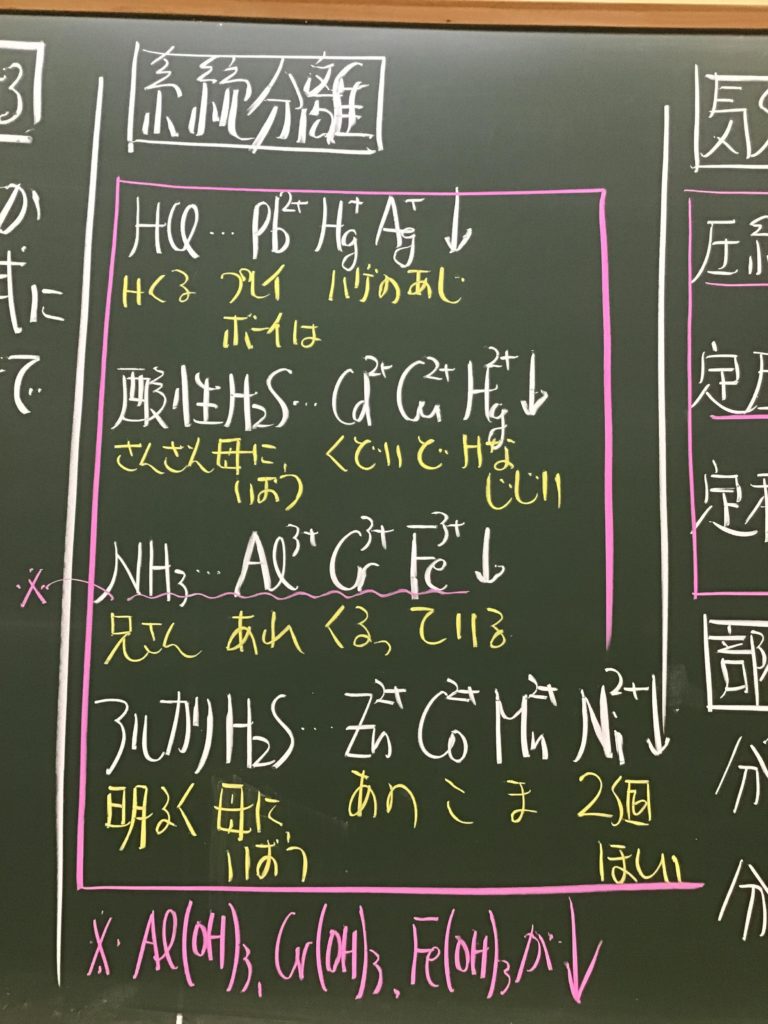 る
か
式に
で
系統分離
HCl … Pb²⁺ Hg⁺ Ag⁺ ↓
Hくる プレイ ハゲのあじ
ボーイは
酸性H₂S … Cd²⁺ Cu²⁺ Hg²⁺ ↓
さんざん母に、 くどいど Hな
いばう じじい
※ NH₃ … Al³⁺ Cr³⁺ Fe³⁺ ↓
兄さん あれ くるっ ている
アルカリH₂S … Zn²⁺ Co²⁺ Mn²⁺ Ni²⁺ ↓
明るく 母に、 あの こ ま 2個
いばう ほしい
※・Al(OH)₃、Cr(OH)₃、Fe(OH)₃が↓
圧
定圧
定
部
分
分